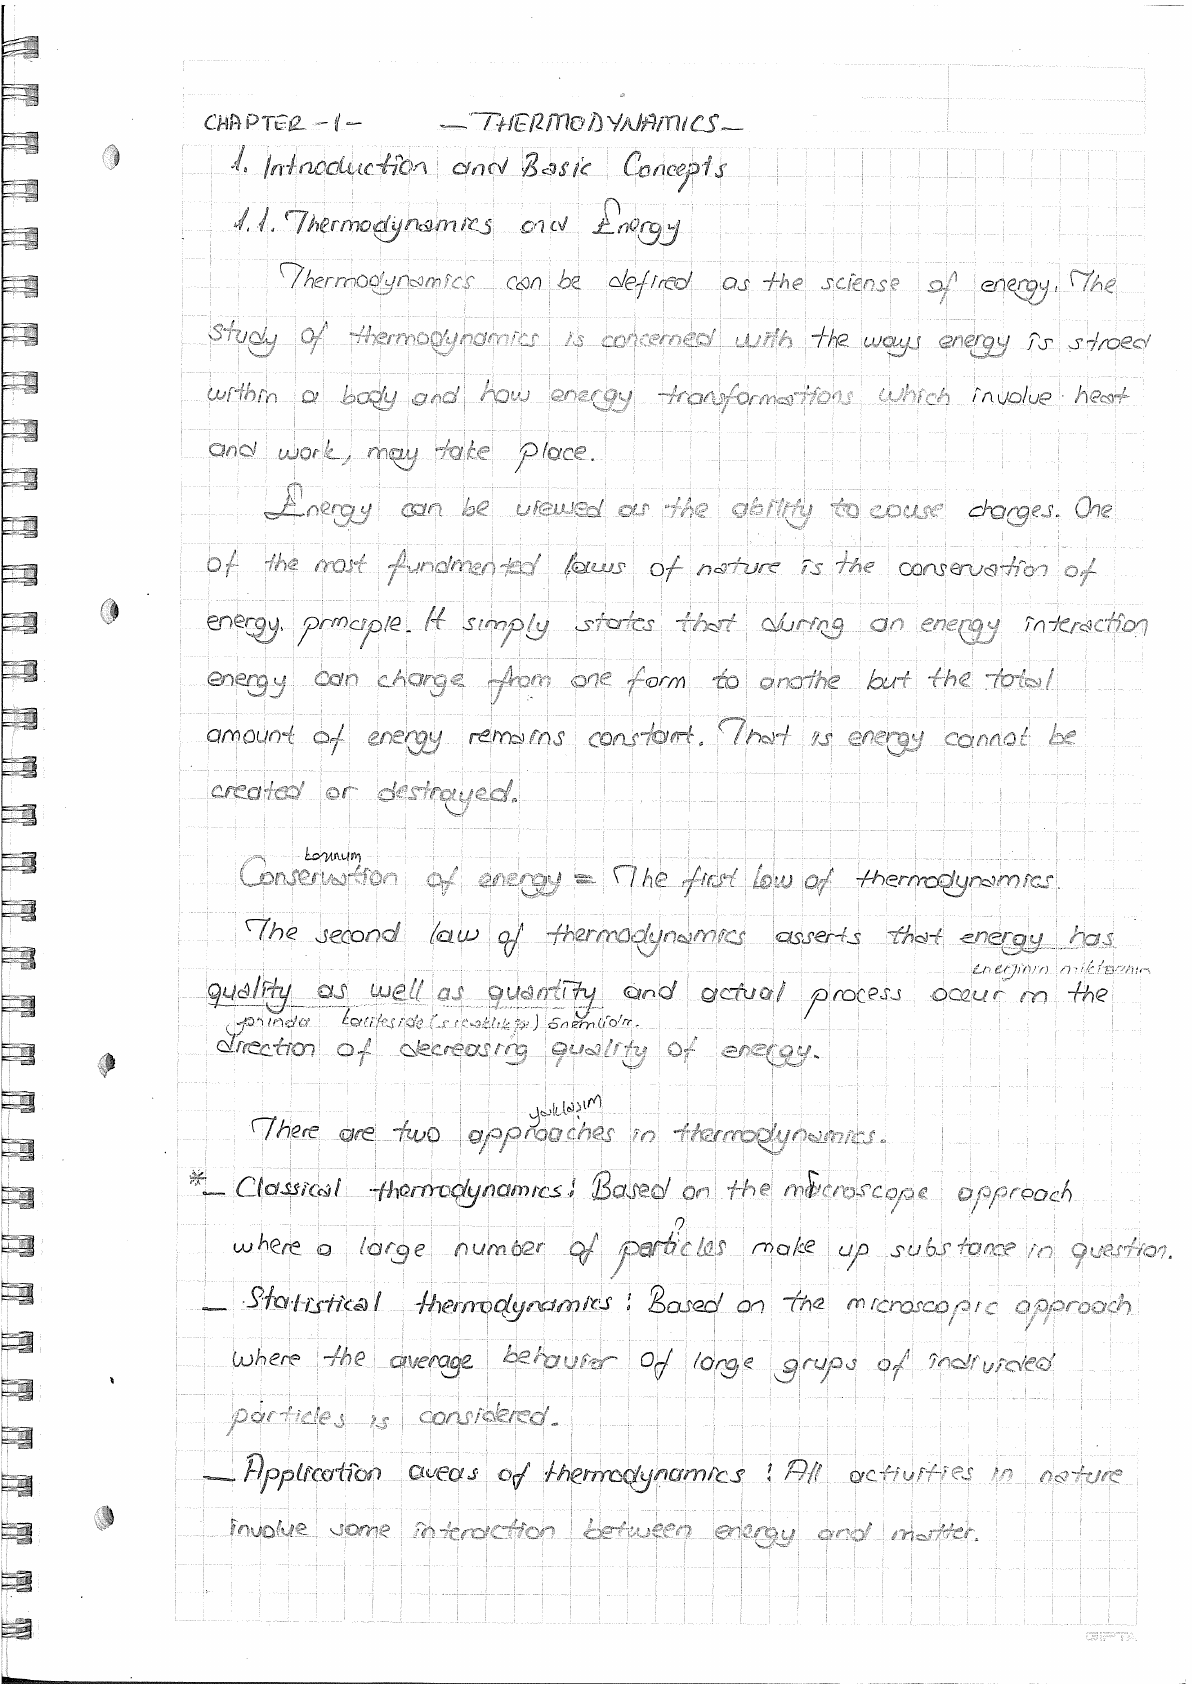 CHAPTER -1- — THERMODYNAMICS —
1. Introduction and Basic Concepts
1.1. Thermodynamics and Energy
Thermodynamics can be defined as the sciense of energy. The
study of thermodynamics is concerned with the ways energy is stroed
within a body and how energy transformations which involve heat
and work, may take place.
Energy can be viewed as the ability to couse charges. One
of the most fundmented laws of nature is the conservation of
energy. principle. It simply states that during an energy interaction
energy can charge from one form to anothe but the total
amount of energy remains constant. That is energy cannot be
created or destrayed.
korunum
Conservation of energy = The first low of thermodynamics.
The second law of thermodynamics asserts that energy has
enerjinin miktarının
quality as well as quantity and actual process occur in the
yanında kalitesi de önemlidir.
direction of decreasing quality of energy.
yaklaşım
There are two approaches in thermodynamics.
*— Classical thermodynamics: Based on the macroscope approach
where a large number of particles make up substance in question.
— Statistical thermodynamics: Based on the microscopic approach
where the average behavier of large grups of individed
particles is considered.
— Application aveas of thermodynamics: All activities in nature
involve some interaction between energy and matter.
GIPTA